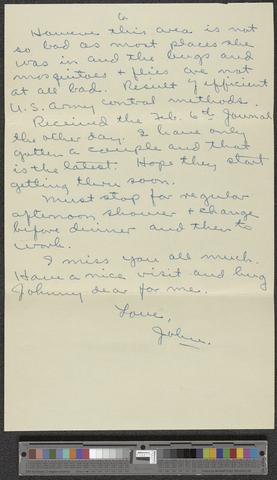 6
However this area is not
so bad as most places she
was in and the bugs and
mosquitoes + flies are not
at all bad. Result of efficient
U.S. Army control methods.
Received the Feb. 6th Journal
the other day. I have only
gotten a couple and that
is the latest. Hope they start
getting thru soon.
Must stop for regular
afternoon shower + change
before dinner and then to
work.
I miss you all much.
Have a nice visit and hug
Johnny dear for me.
Love,
John.